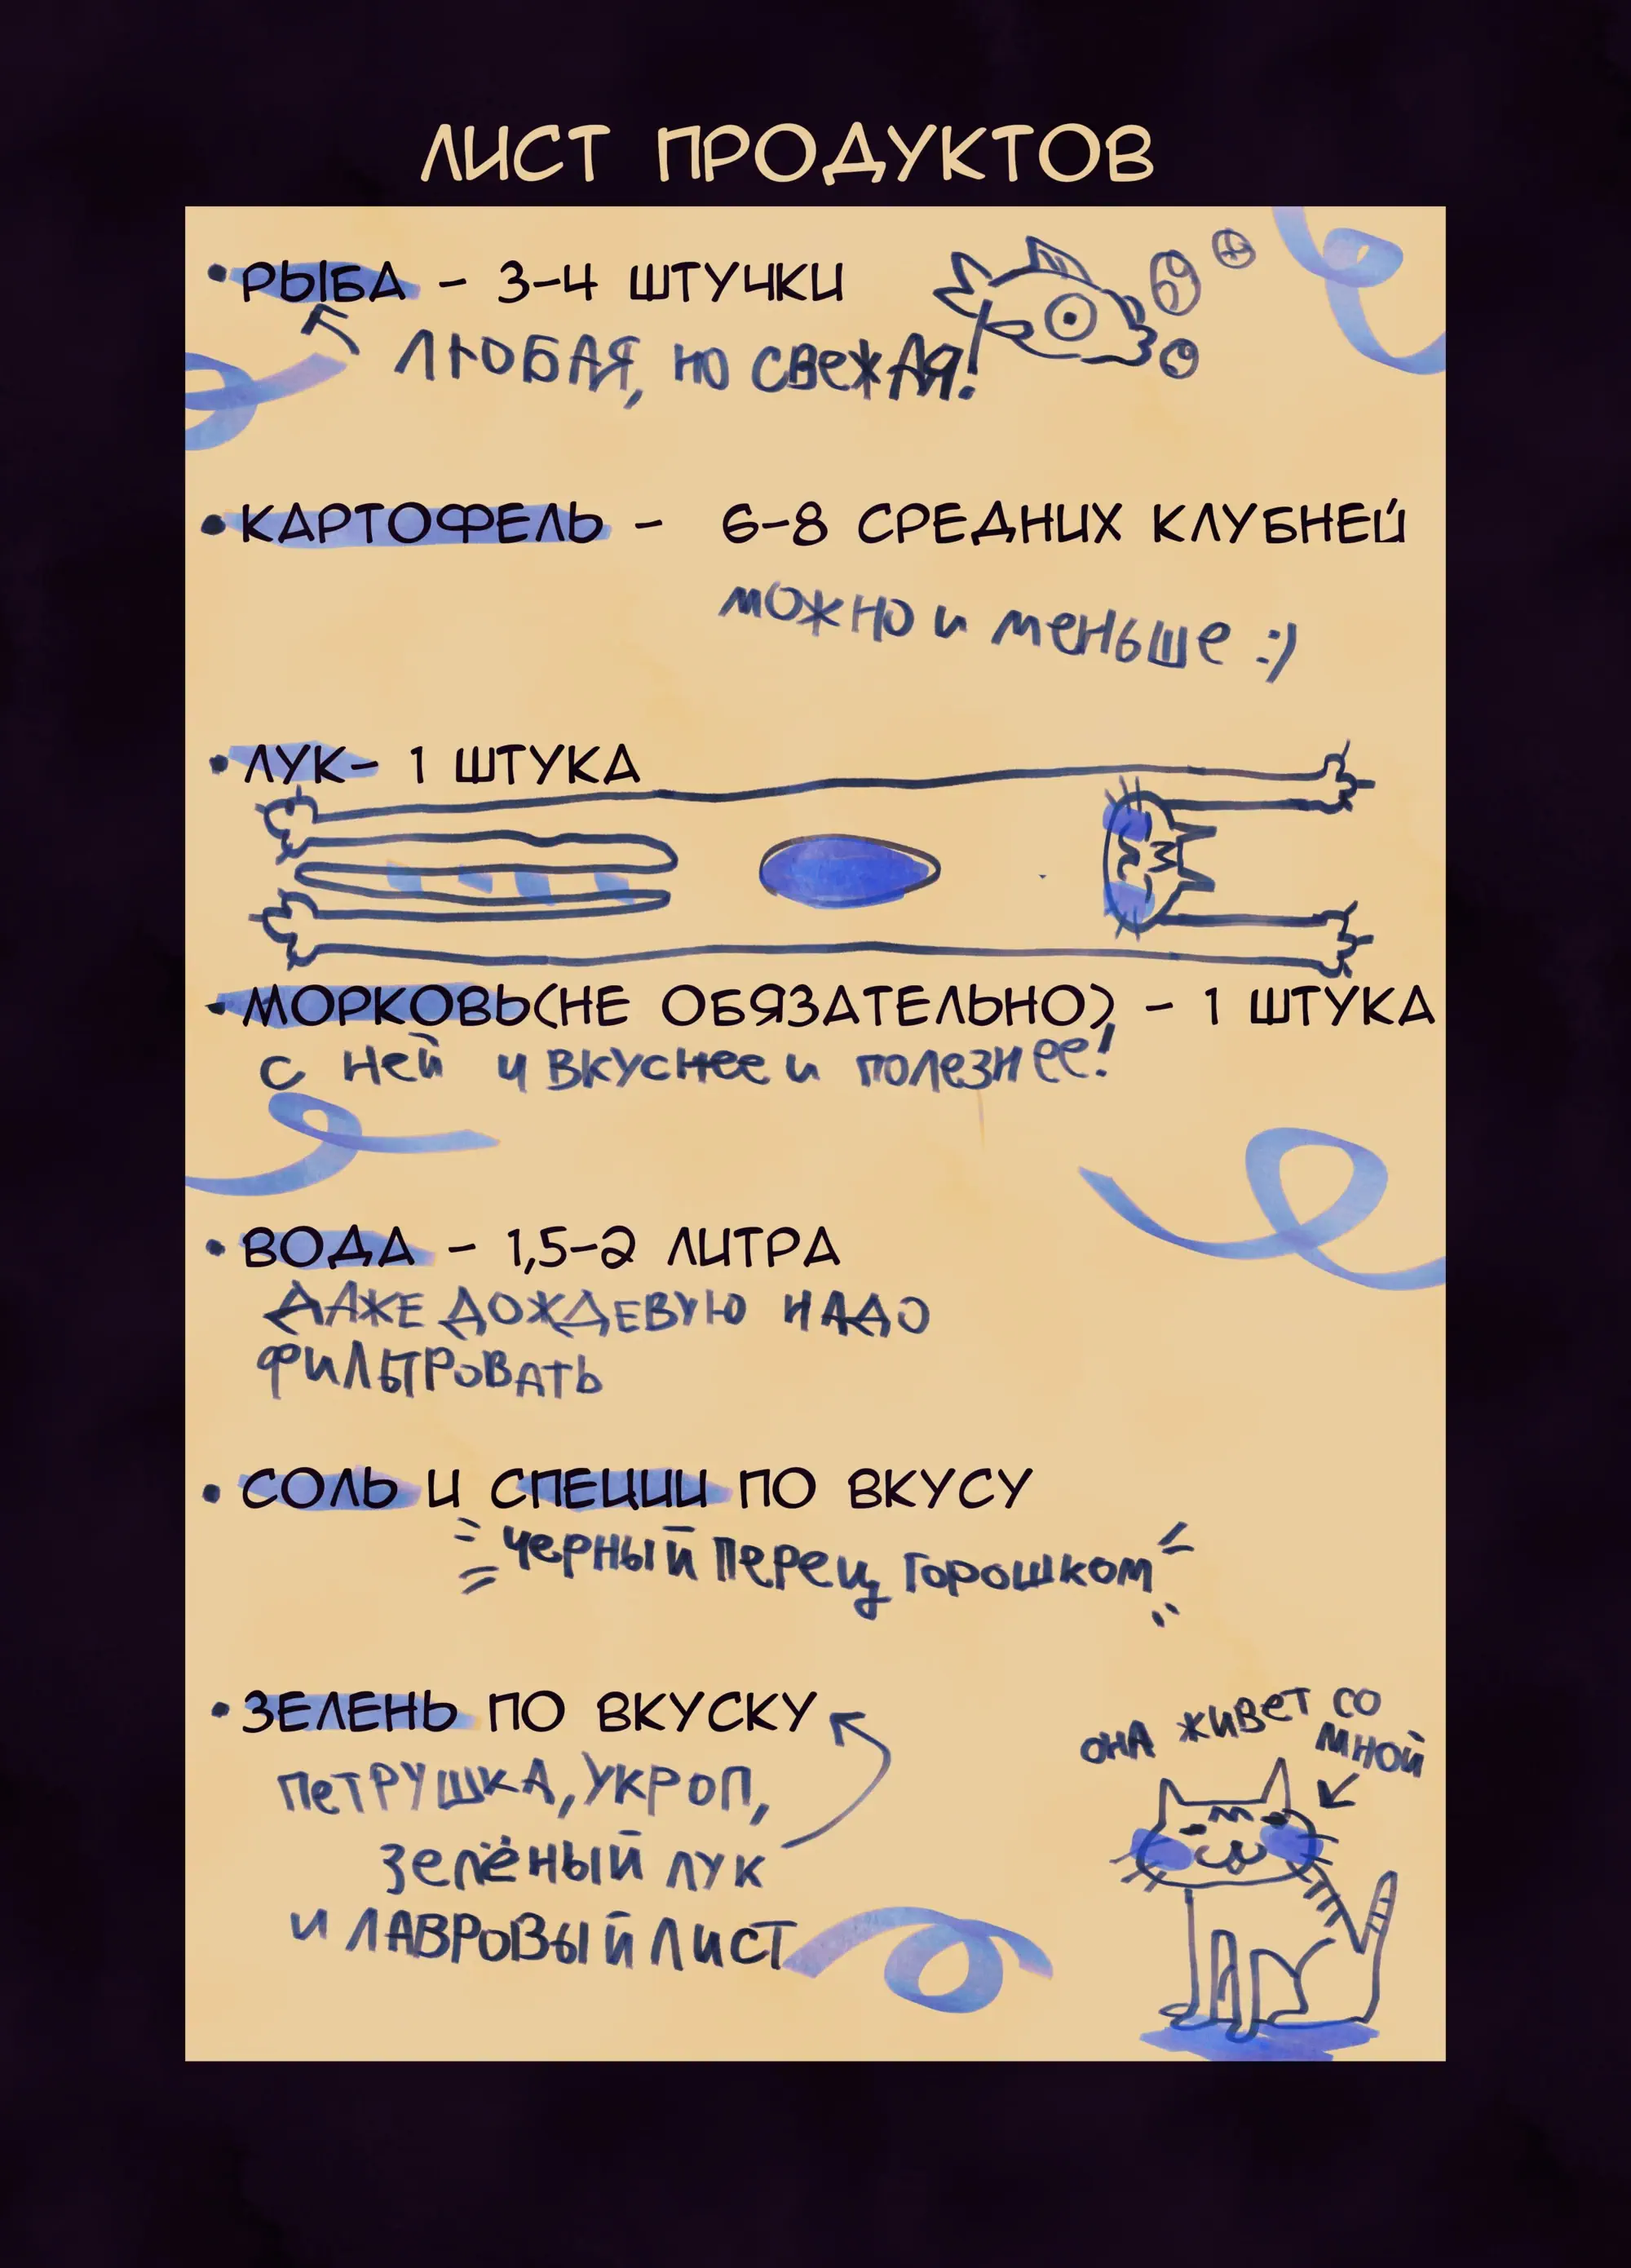 ЛИСТ ПРОДУКТОВ
• РЫБА - 3-4 ШТУЧКИ
ЛЮБАЯ, но свежАЯ!
• КАРТОФЕЛЬ - 6-8 СРЕДНИХ КЛУБНЕЙ
можно и меньше :)
• ЛУК- 1 ШТУКА
- МОРКОВЬ(НЕ ОБЯЗАТЕЛЬНО) - 1 ШТУКА
с ней и вкуснее и полезнее!
• ВОДА - 1,5-2 ЛИТРА
ДАЖЕ ДОЖДЕВУЮ НАДО
ФИЛЬТРОВАТЬ
• СОЛЬ И СПЕЦИИ ПО ВКУСУ
черный перец горошком
• ЗЕЛЕНЬ ПО ВКУСКУ
петрушка, укроп,
зелёный лук
и лавровый лист
она живет со
мной